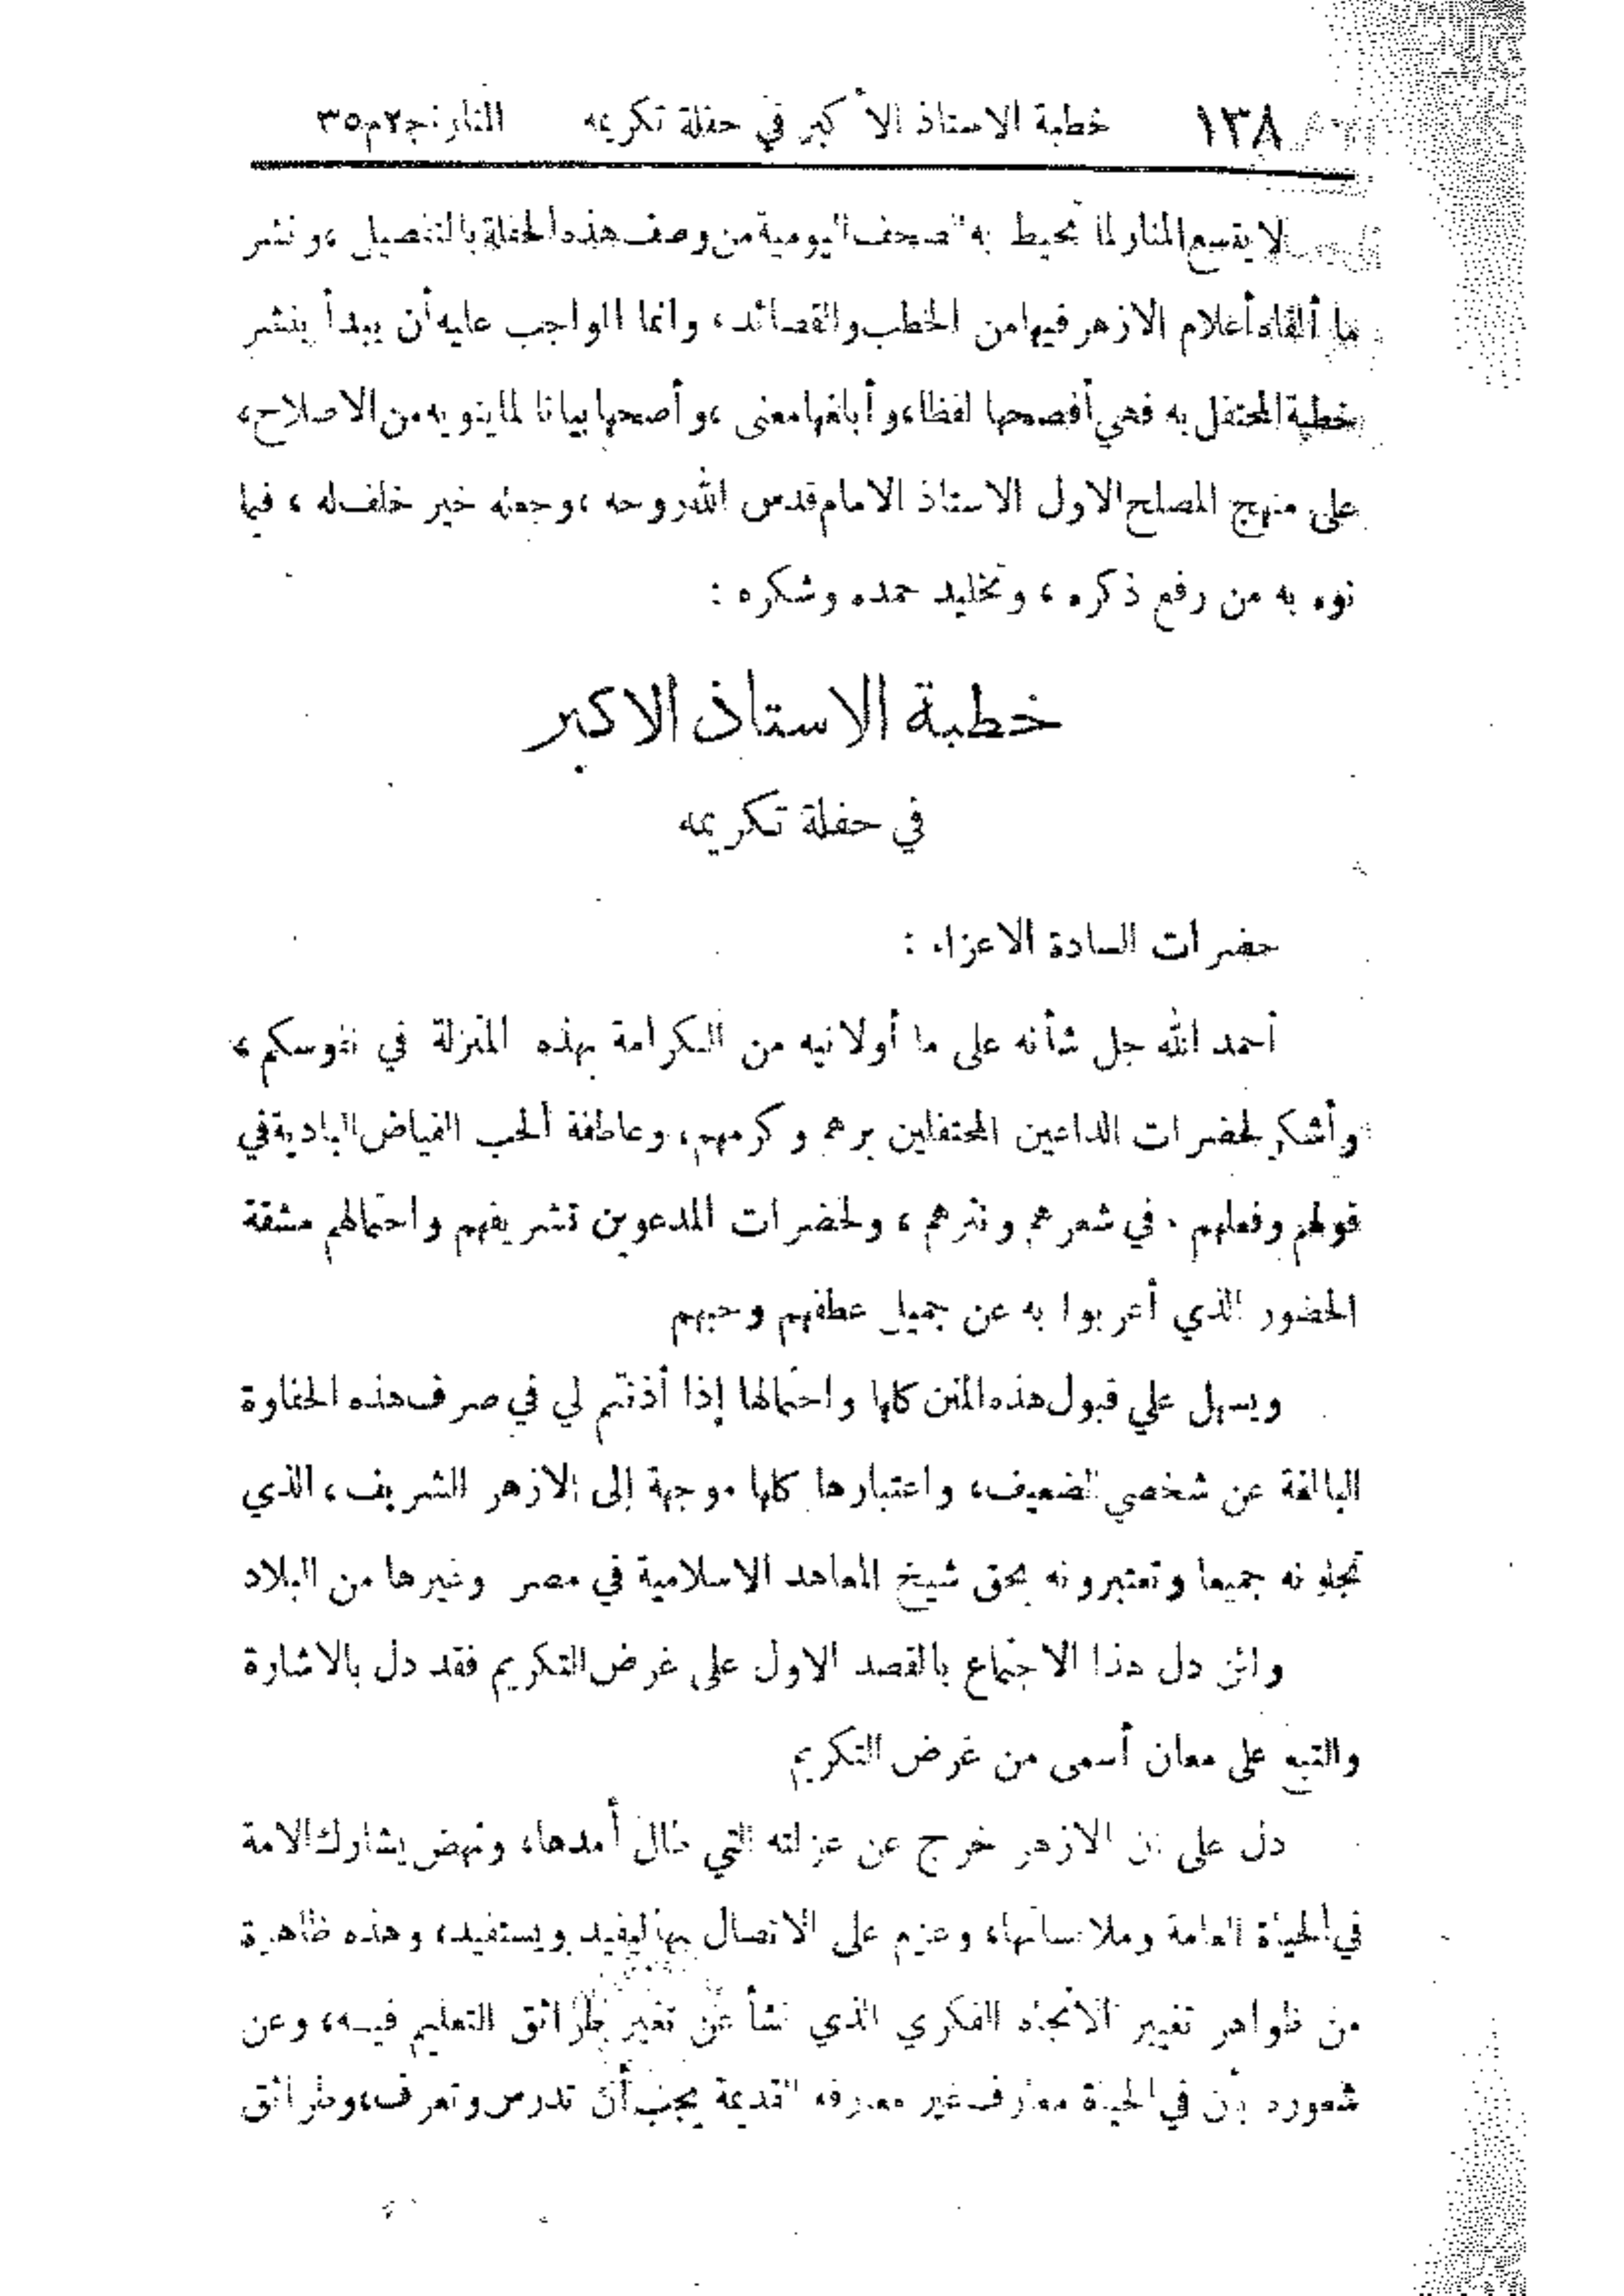 ١٣٨ خطبة الاستاذ الأكبر في حفلة تكريمه المنار ج٢م٣٥
لا يتسع المنار لما تحيط به الصحف اليومية من وصف هذه الحفلة بالتفصيل ، ونشر
ما ألقاه أعلام الازهر فيها من الخطب والقصائد ، وانما الواجب عليه أن يبدأ بنشر
خطبة المحتفل به فهي أفصحها لفظا، وأبلغها معنى ، وأصحها بيانا لما ينويه من الاصلاح،
على منهج المصلح الاول الاستاذ الامام قدس الله روحه ، وجعله خير خلف له ، فيما
نوه به من رفع ذكره ، وتخليد حمده وشكره :
خطبة الاستاذ الاكبر
في حفلة تكريمه
حضرات السادة الاعزاء :
أحمد الله جل شأنه على ما أولانيه من الكرامة بهذه المنزلة في نفوسكم ،
وأشكر لحضرات الداعين المحتفلين برهم وكرمهم ، وعاطفة الحب الفياض البادية في
قولهم وفعلهم . في شعرهم ونثرهم ، ولحضرات المدعوين تشريفهم واحتمالهم مشقة
الحضور الذي أعربوا به عن جميل عطفهم وحبهم
ويسهل علي قبول هذه المنن كلها واحتمالها إذا أذنتم لي في صرف هذه الحفاوة
البالغة عن شخصي الضعيف ، واعتبارها كلها موجهة إلى الازهر الشريف ، الذي
تجلونه جميعا وتعتبرونه بحق شيخ المعاهد الاسلامية في مصر وغيرها من البلاد
ولئن دل هذا الاجتماع بالقصد الاول على غرض التكريم فقد دل بالاشارة
والتبع على معان أسمى من غرض التكريم
دل على أن الازهر خرج عن عزلته التي طال أمدها، ونهض يشارك الامة
في الحياة العامة وملابساتها، وعزم على الاتصال بها ليفيد ويستفيد، وهذه ظاهرة
من ظواهر تغيير الاتجاه الفكري الذي نشأ عن تغير طرائق التعليم فيه، وعن
شعوره بأن في الحياة معارف غير معارفه القديمة يجب أن تدرس وتعرف، وطرائق